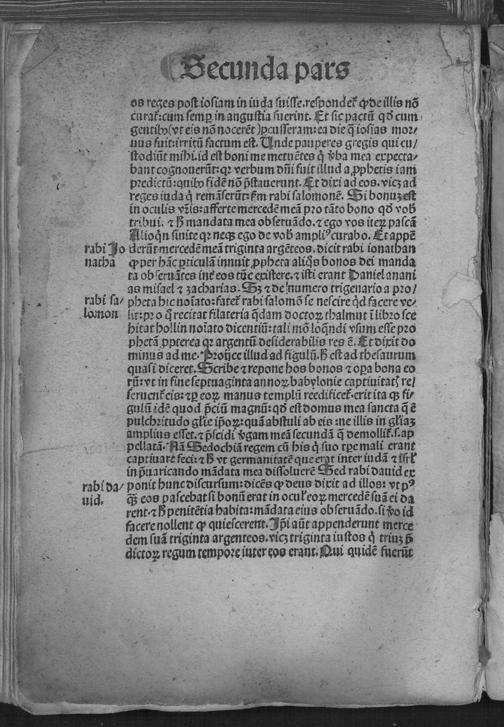 Secunda pars
os reges post iosiam in iuda fuisse. respondeť ꝙ de illis nõ
curat: cum semꝑ in angustia fuerint. Et sic pactũ qđ cum
gentibꝰ (vt eis nõ nocerẽt) ꝑcusseram: ea die q̃ iosias mor/
uus fuit: irritũ factum est. Unde pauperes gregis qui cu/
stodiũt mihi. id est boni me metuẽtes q̃ ꝟba mea expecta/
bant cognouerũt: qꝛ verbum dñi fuit illud a ꝓphetis iam
predictũ: quibꝰ fidẽ nõ p̃stauerunt. Et dixi ad eos. vicꝫ ad
reges iuda q̃ remãserũt: ẜm rabi salomonẽ. Si bonuꝫ est
in oculis vr̃is: afferte mercedẽ meã pro tãto bono qđ vobꝰ
tribui. ⁊ ꝧ mandata mea obseruãdo. ⁊ ego vos iteꝝ pascã
Alioq̃n sinite qꝛ neqꝫ ego de vobꝰ ampliꝰ curabo. Et appẽ
rabi Jo derũt mercedẽ meã triginta argẽteos. dicit rabi ionathan
nathã ꝙ per hãc ꝑticulã innuit ꝓpheta aliq̃s bonos dei manda
ta obseruãtes inť eos tũc existere. ⁊ isti erant Daniel anani
as misael ⁊ zacharias. Sꝫ ⁊ de numero trigenario a pro/
rabi sa/ pheta hic noĩato: fateť rabi salomõ se nescire qđ facere ve/
lomon lit: pro q̃ recitat filateria q̃dam doctoꝝ thalmut ĩ libro sce
hitat hollin noĩato dicentiũ: tali mõ loq̃ndi vsum esse pro
phetã ꝓpterea qꝛ argentũ desiderabilis res ẽ. Et dixit do
minus ad me. Proijce illud ad figulũ. ꝧ est ad thesaurum
quasi diceret. Scribe ⁊ repone hos bonos ⁊ oꝑa bona eo
rũ: vt in fine septuaginta annoꝝ babylonie captiuitatꝭ re/
seruenť eis: ⁊ ꝑ eoꝝ manus templũ reedificeť. erit ita qꝫ fi/
gulũ idẽ quod p̃ciũ magnũ: qđ est domus mea sancta q̃ ẽ
pulchritudo glie ip̃oꝝ: quã abstuli ab eis: ne illis in gliaꝫ
amplius esset. ⁊ p̃scidi ꝟgam meã secundã q̃ demolliť. s. ap
pellatã. Nã Sedochiã regem cũ his q̃ suo tꝑe mali erant
captiuare feci: ⁊ ꝧ vt germanitatẽ que erat inter iudã ⁊ isrľ
in p̃uaricando mãdata mea dissoluerẽ Sed rabi dauid ex
rabi da/ ponit hunc discursum: dicẽs ꝙ deus dixit ad illos: vt pꝰ
uid. q̃ꝫ eos pascebat si bonũ erat in oculꝭ eoꝝ mercedẽ suã ei da
rent. ⁊ ꝧ penitẽtia habita: mãdata eius obseruãdo. si ꝟo id
facere nollent ꝙ quiescerent. Jp̃i aũt appenderunt merce
dem suã triginta argenteos. vicꝫ triginta iustos q̃ triuꝫ p̃
dictoꝝ regum tempore inter eos erant. Qui quidẽ fuerũt